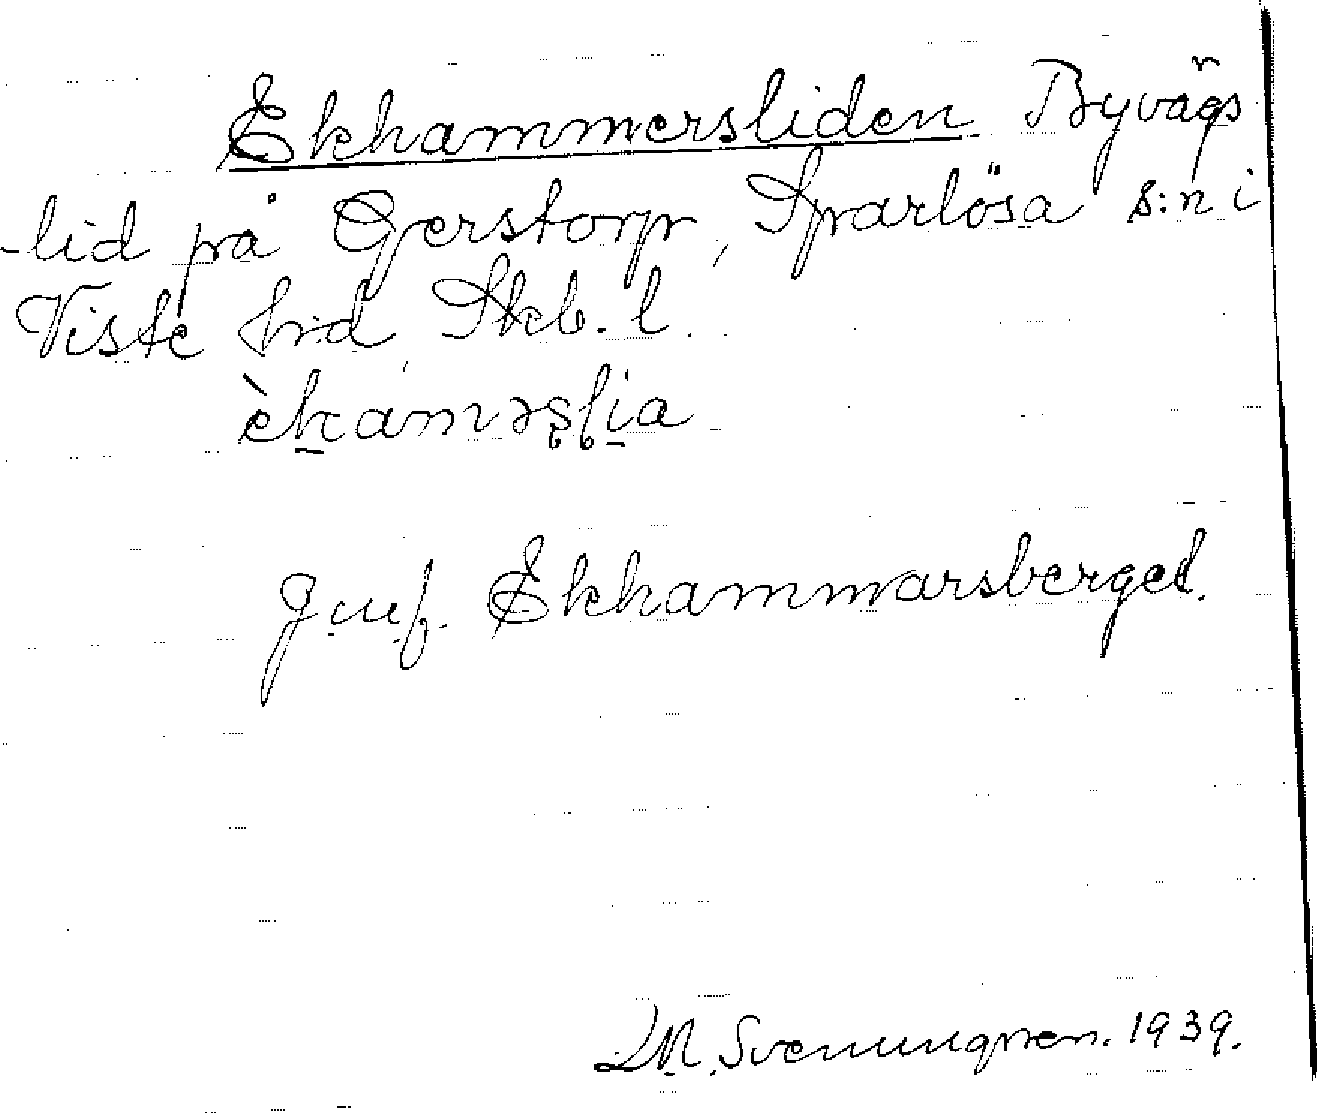 Ekhammersliden Byvägs
-lid på Gerstorp, Sparlösa s:n i
Viste hrd, Skb. l.
èkámərslia
Jmf. Ekhammarsberget.
L.M. Svenungsson. 1939.